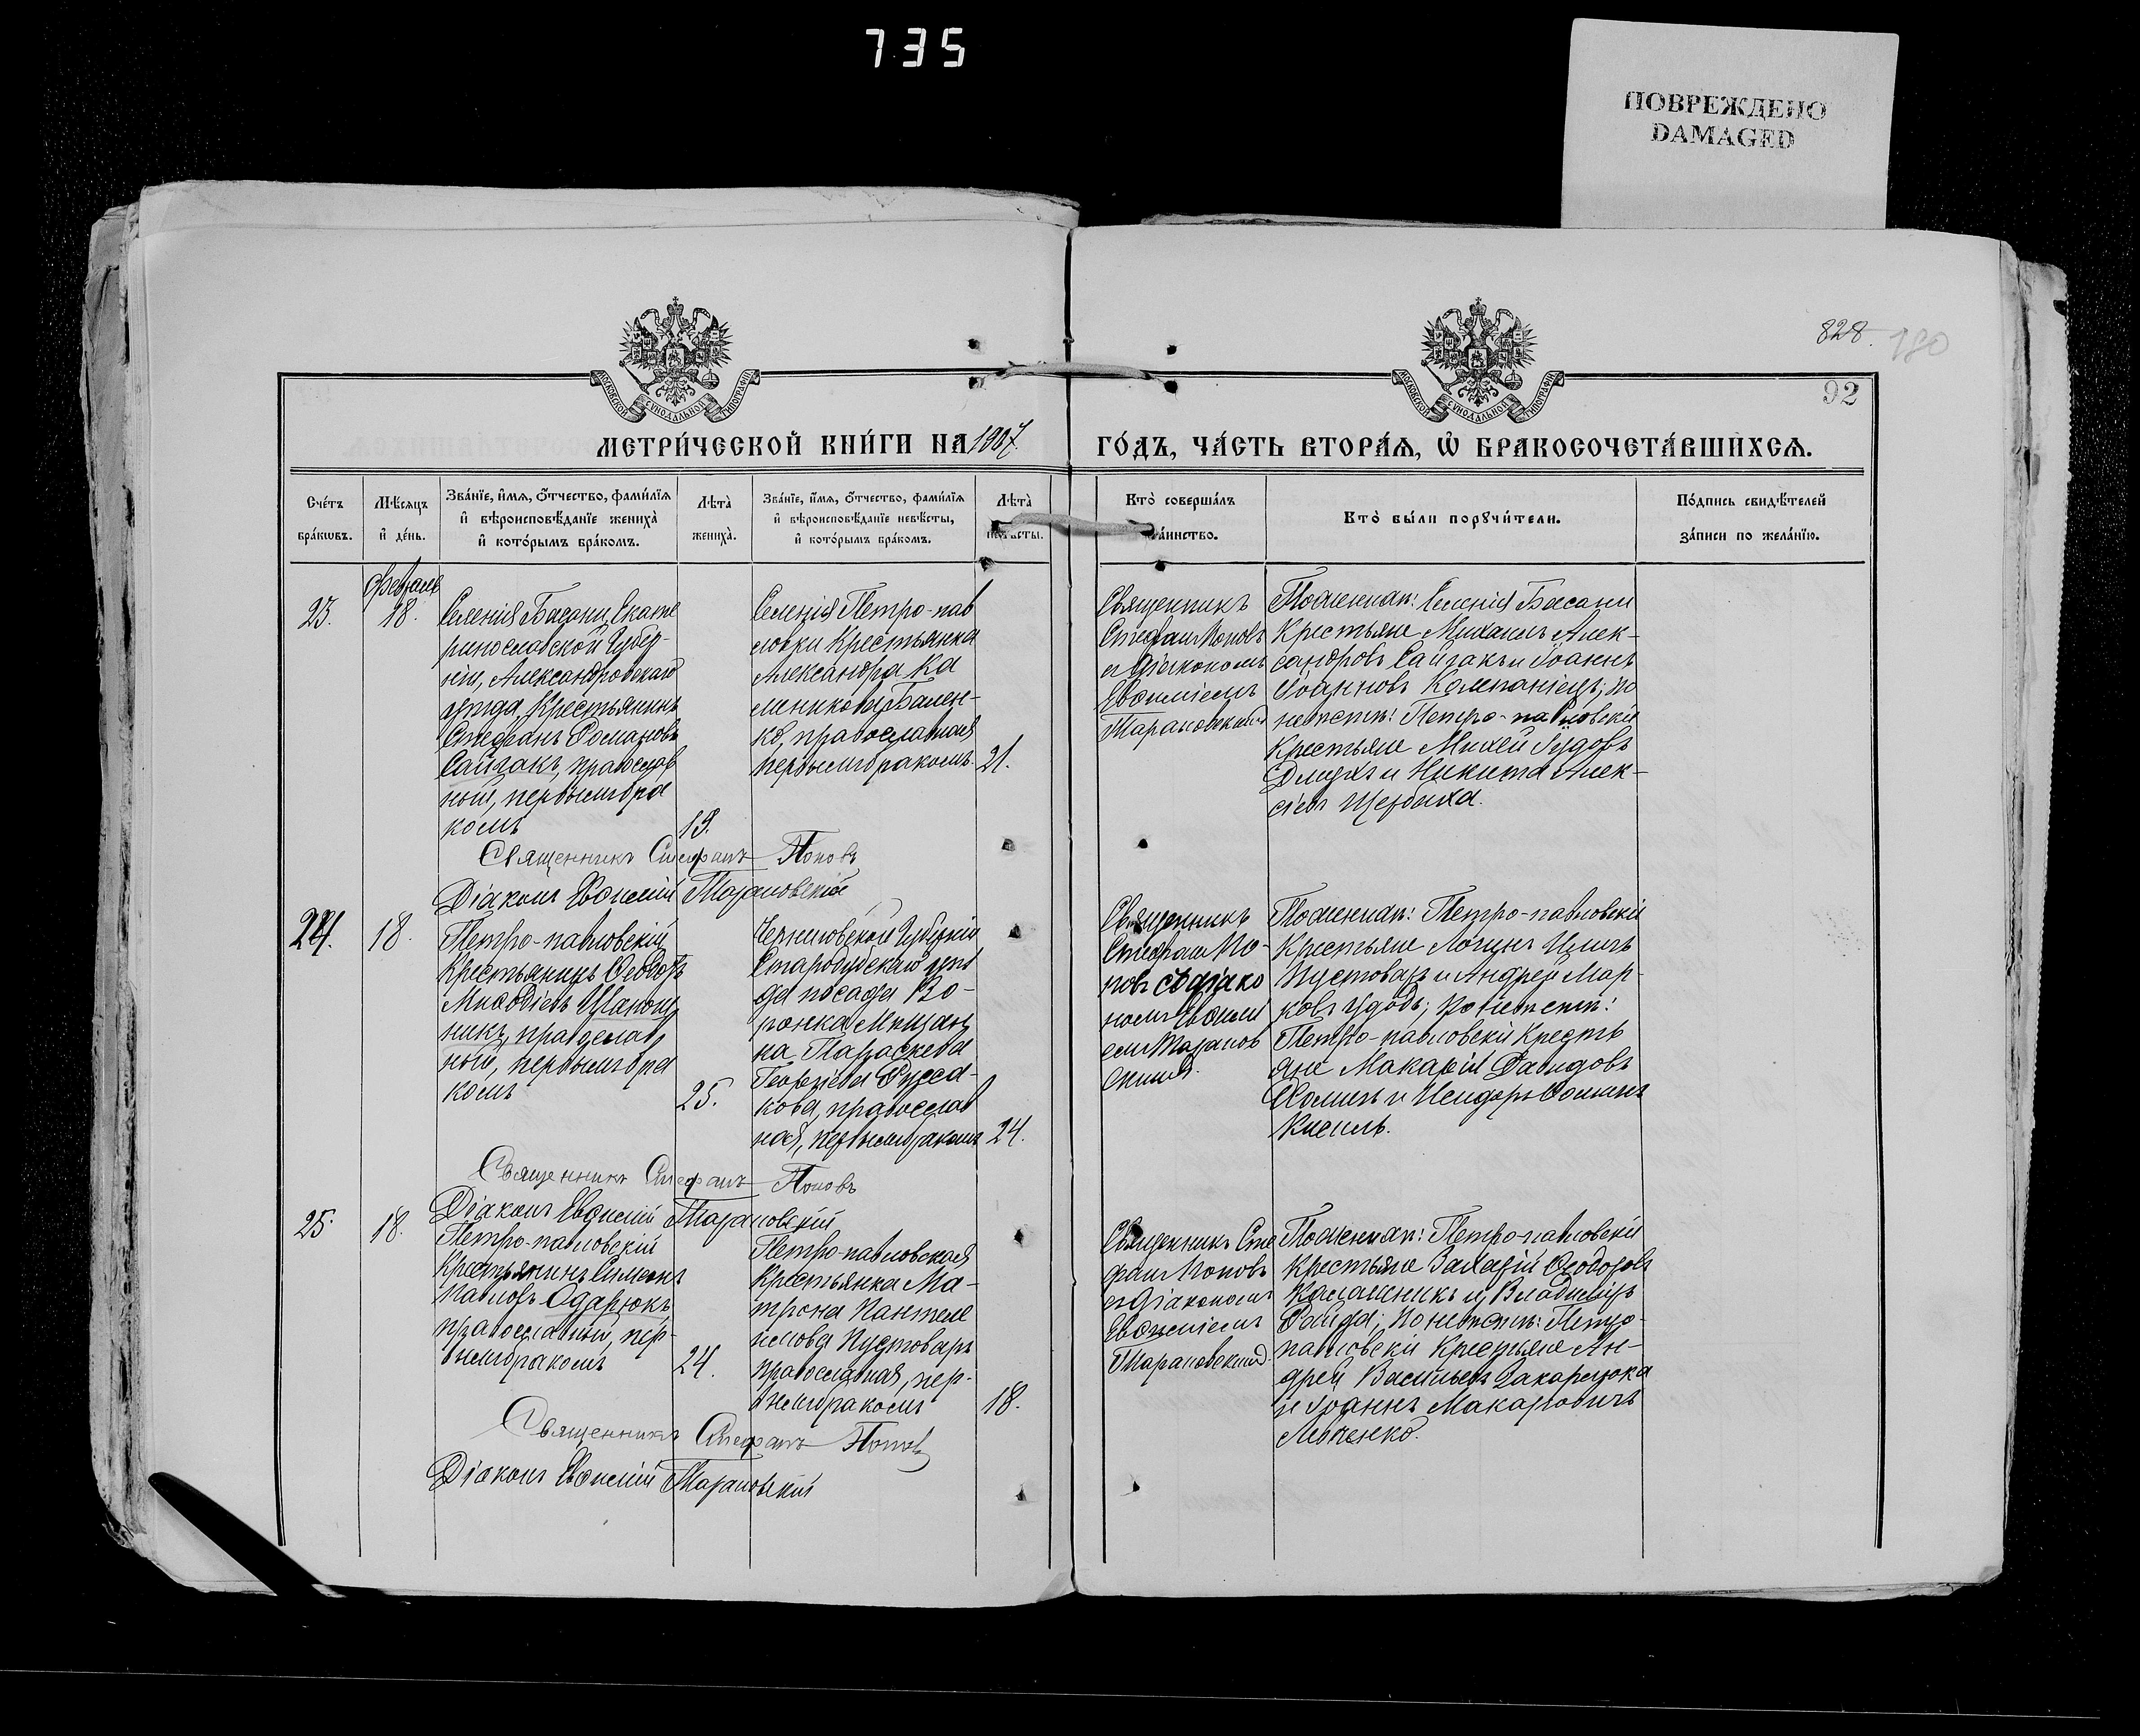 735
ПОВРЕЖДЕНО
DAMAGED
828.
180
92
МЕТРИ́ЧЕСКОЙ КНИ́ГИ НА 1907
ГО́ДЪ, ЧА́СТЬ ВТОРА́Я, Ѽ БРАКОСОЧЕТА́ВШИХСЯ.
Сче́тъ бра́кѡвъ.
Мѣ́сяцъ и҆ де́нь.
Зва́нїе, и҆́мя, ѻ҆́тчество, фами́лїя
и҆ вѣроисповѣ́данїе жениха̀
и҆ кото́рымъ бра́комъ.
Лѣта̀ жениха̀.
Зва́нїе, и҆́мя, ѻ҆́тчество, фами́лїя
и҆ вѣроисповѣ́данїе невѣ́сты,
и҆ кото́рымъ бра́комъ.
Лѣта̀
Кто̀ соверша́лъ
Кто̀ бы́ли порꙋчи́тели.
По́дпись свидѣ́телей
за́писи по жела́нїю.
Февраль
23.
18.
Селенія Басани, Екате
ринославской Губер-
ніи, Александровскаго
уѣзда, Крестьянинъ
Стефанъ Романовъ
Сайгакъ, православ
ный, первымъ бра
комъ
19.
Селенія Петро-пав
ловки Крестьянка
Александра Ка
леникова Бален-
ко, православная
первымъ бракомъ.
21.
Священникъ
Стефанъ Поповъ
съ діакономъ
Евѳиміемъ
Тарановскимъ
По женихѣ: Селенія Басани
Крестьяне Михаилъ Алек-
сандровъ Сайгакъ и Іоаннъ
Іоанновъ Компаніецъ; по
невѣстѣ: Петро-павловскіе
Крестьяне Михей
и Никита Алек-
сіевъ Щербина.
Священникъ Стефанъ Поповъ
Діаконъ Евѳимій Тарановскій
24.
18.
Петро-павловскій
Крестьянинъ Ѳеодоръ
Меѳодіевъ
никъ, православ
ный, первымъ бра
комъ
25.
Черниговской Губерніи
Стародубскаго уѣз
да посада Во-
ронка Мѣщан
ка Параскева
Георгіева Руса-
кова, православ
ная, первымъ бракомъ
24.
Священникъ
Стефанъ По-
повъ съ діако
номъ Евѳимі
емъ Таранов
скимъ.
По женихѣ: Петро-павловскіе
Крестьяне Логинъ
Пустоваръ и Андрей Мар-
ковъ Удодъ; по невѣстѣ:
Петро-павловскіе Кресть
яне Макарій Давидовъ
Хоминъ и Исидоръ Ѳоминъ
Кисиль.
Священникъ Стефанъ Поповъ
Діаконъ Евѳимій Тарановскій
25.
18.
Петро-павловскій
Крестьянинъ Симеонъ
Павловъ Одарюкъ
православный, пер-
вымъ бракомъ
24.
Петро-павловская
Крестьянка Ма-
трона Пантеле
имова Пустоваръ
православная, пер-
вымъ бракомъ
18.
Священникъ Сте
фанъ Поповъ
съ діакономъ
Евѳиміемъ
Тарановскимъ.
По женихѣ: Петро-павловскіе
Крестьяне Захарій Ѳеодоровъ
Калашникъ и Владиміръ
по невѣстѣ: Петро-
павловскіе Крестьяне Ан-
дрей Васильевъ
и Іоаннъ Макаровичъ
Священникъ Стефанъ Поповъ
Діаконъ Евѳимій Тарановскій